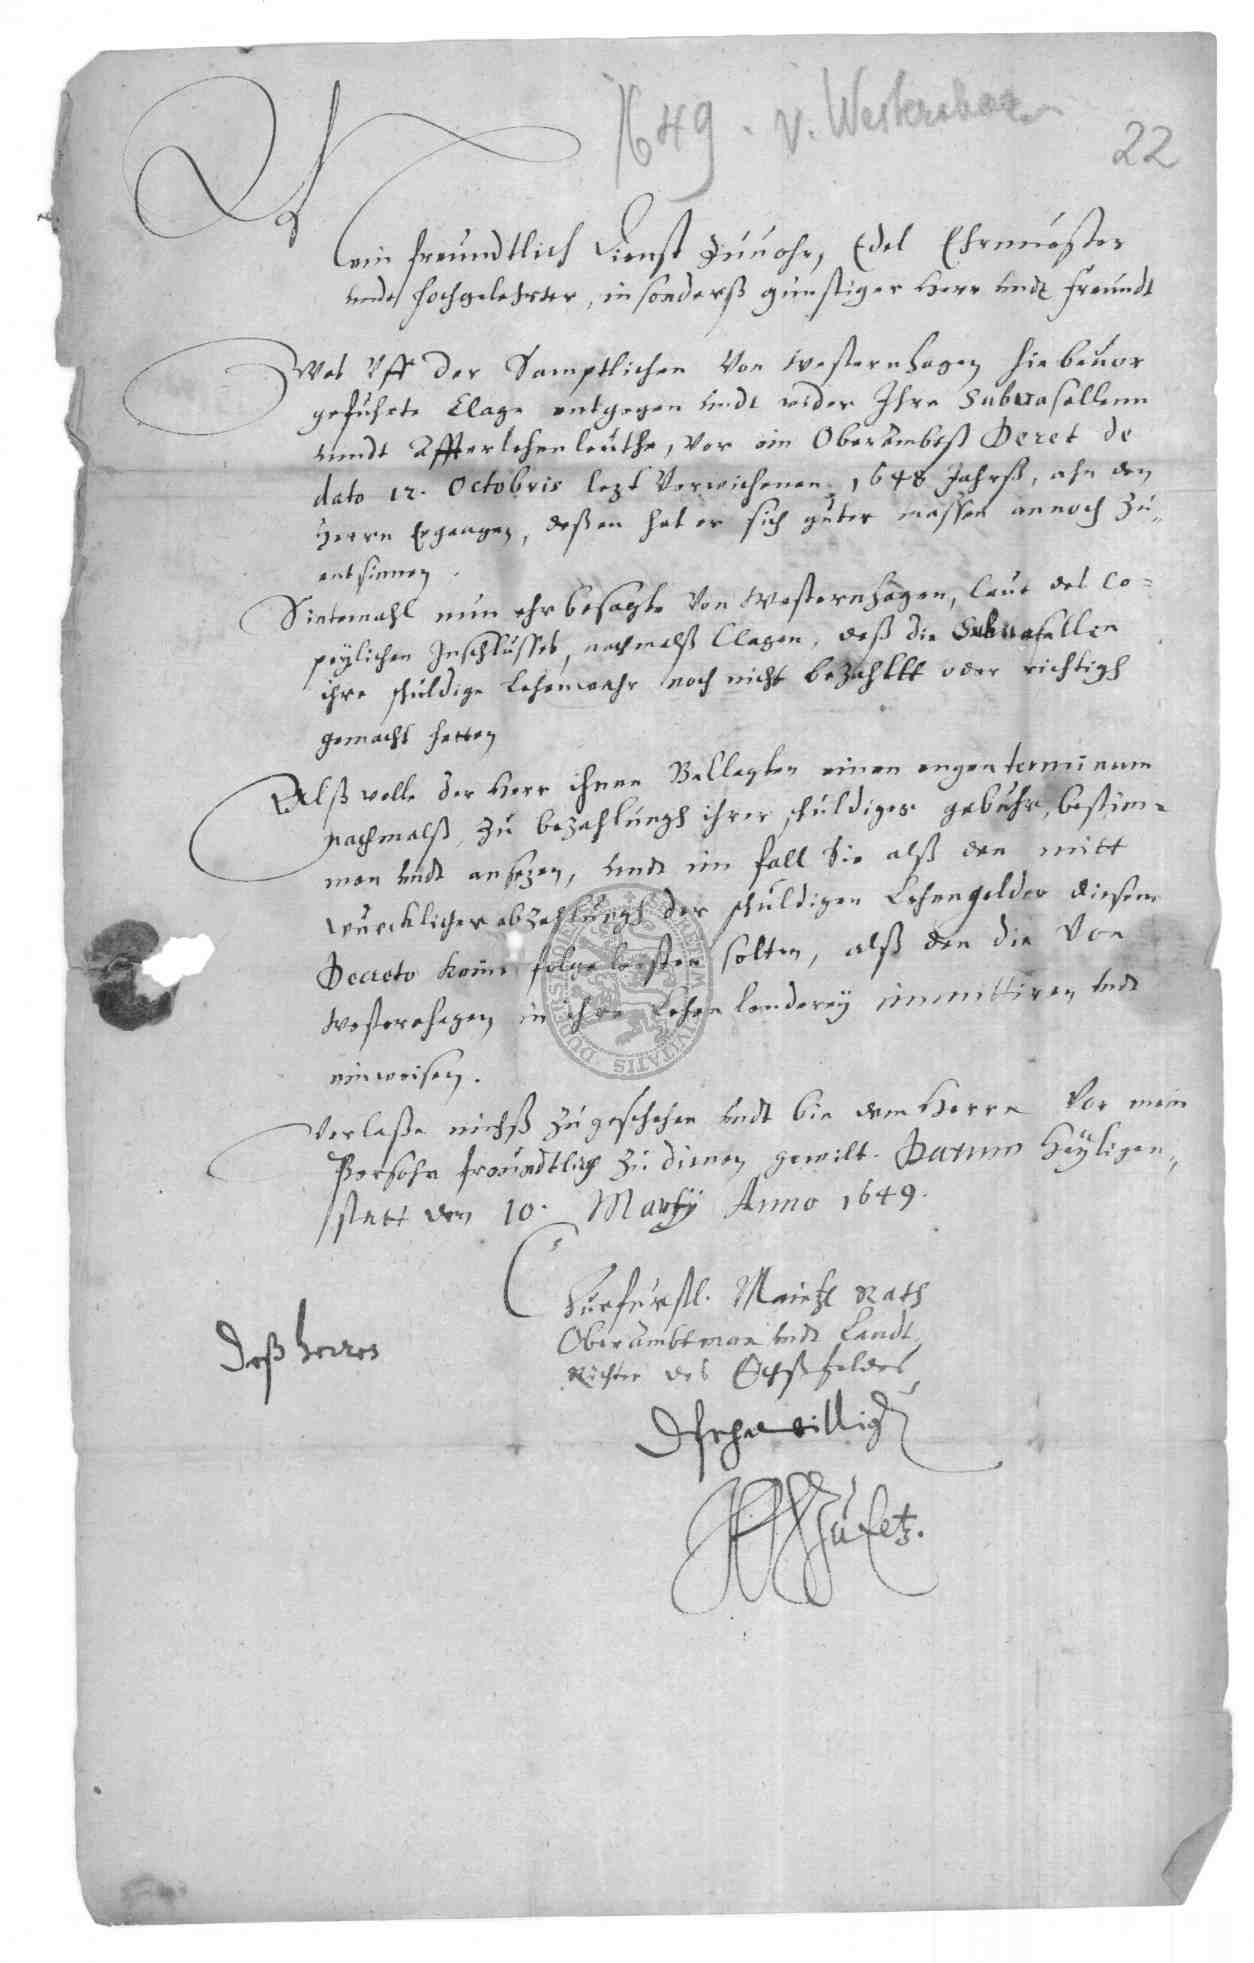 1649. v. Westernhagen
22
Mein freundtlich Dienst Zuuohr, Edel Ehrnuester
undt hochgelehrter, insonderß günstiger Herr undt freundt
Waß Uff der Samptlichen Von Westernhagen hiebeuor
gefuhrte Clage entgegen undt wider Ihre Subuasallenn
unndt Affterlehenleuthe, Vor ein Oberambtß Decret de
dato 12. Octobris lezt Verwichenen 1648 Jahrß, ahn den
Herrn Ergangen, deßen hat er sich guter massen annoch Zu„
entsinnen.
Sintemahl nun ehrbesagte Von Westernhagen, laut des Co=
peylichen Inschlusses, nachmalß Clagen, daß die Subuasallen
ihre schuldige Lehenwahr noch nicht bezahltt oder richtigh
gemacht hetten
Alß wolle der Herr ihnen Beklagten einen engen terminum
nachmalß, zu bezahlungh ihrer schuldiger gebuhr, bestim=
men undt ansezen, undt im fall Sie alß den mitt
wurcklicher abzahlungh der schuldigen Lehengelder diesem
Decreto keine folge leisten solten, alß den die Von
Westernhagen in ihre Lehen Lenderey immittiren undt
einweisen.
Verlaße michß zu geschehen undt bin dem Herrn Vor mein
Persohn freundtlich zu dienen gewilt. Datum Heyligen„
statt den 10. Martij Anno 1649.
Churfürstl. Maintz Rath
Oberambtman undt Landt
Richter des Eichßfeldes
Deß Herren
Dienstwilliger
SIGILLUM CIVITATIS DUDERSTADENSIS